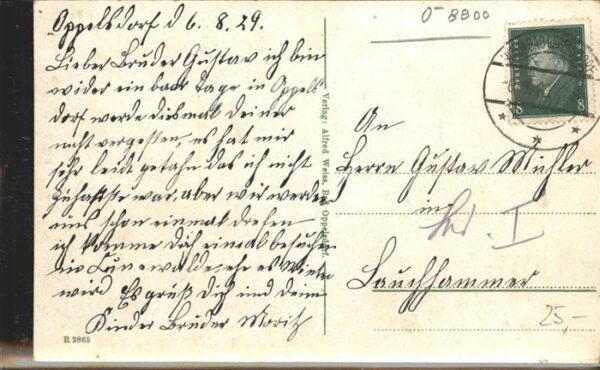 Oppelsdorf d 6. 8. 29.
Lieber Bruder Gustav ich bin
wider ein baar Tage in Oppels
dorf werde diesmal deiner
nicht vergessen, es hat mir
sehr leidt getahn das ich nicht
zuhause war, aber wir werden
uns schon einmal
ich komme dich einmal besuchen
in Cunewalde, ehe es Winter
wird Es grüß Dich und deine
Kinder Bruder Moritz
R 2865
Verlag: Alfred Weise, Bad Oppelsdorf.
0-8800
8 8
An
Herrn Gustav
in
I
Lauchhammer
25,-